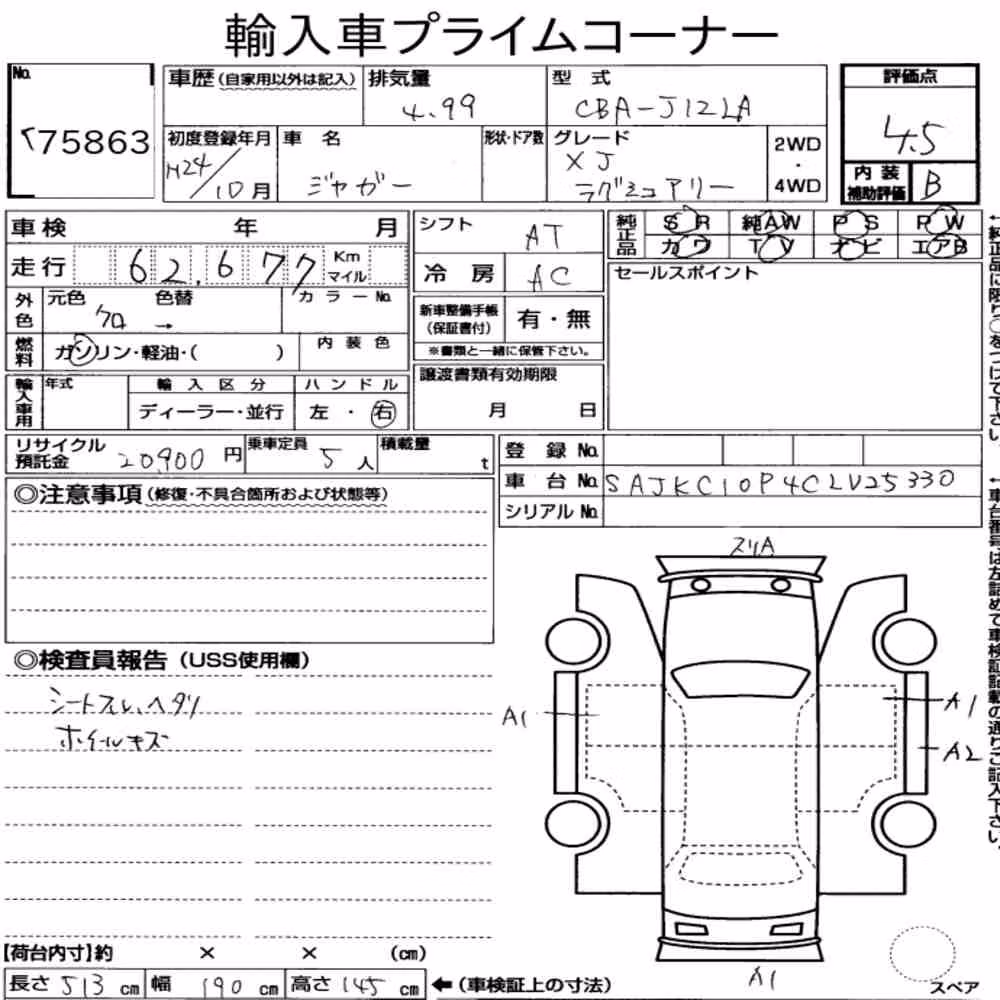 輸入車プライムコーナー
No. 75863
車歴(自家用以外は記入) 排気量 4.99 型式 CBA-J12LA 評価点 4.5
初度登録年月 H24/10月 車名 ジャガー 形状・ドア数 グレード XJ ラグジュアリー 2WD・4WD
内装補助評価 B
車検 年 月
シフト AT
純正品 SR 純AW PS PW
カワ TV ナビ エアB
走行 62,677 Km マイル
冷房 AC
セールスポイント
外色 元色 色替 カラーNo.
クロ →
新車整備手帳(保証書付) 有・無
※書類と一緒に保管下さい。
燃料 ガソリン・軽油・( ) 内装色
譲渡書類有効期限
月 日
輸入車用 年式 輸入区分 ハンドル
ディーラー・並行 左・右
リサイクル預託金 20,900円 乗車定員 5人 積載量 t
登録No.
車台No. SAJKC10P4CLV25330
シリアルNo.
◎注意事項(修復・不具合箇所および状態等)
スリA
◎検査員報告(USS使用欄)
シートスレ、ヘタリ
ホイールキズ
A1
A1
A2
A1
【荷台内寸】約 × × (cm)
長さ 513 cm 幅 190 cm 高さ 145 cm ←(車検証上の寸法)
スペア
←純正品に限り○をつけて下さい。
←車台番号は左詰めで車検証記載の通りご記入下さい。